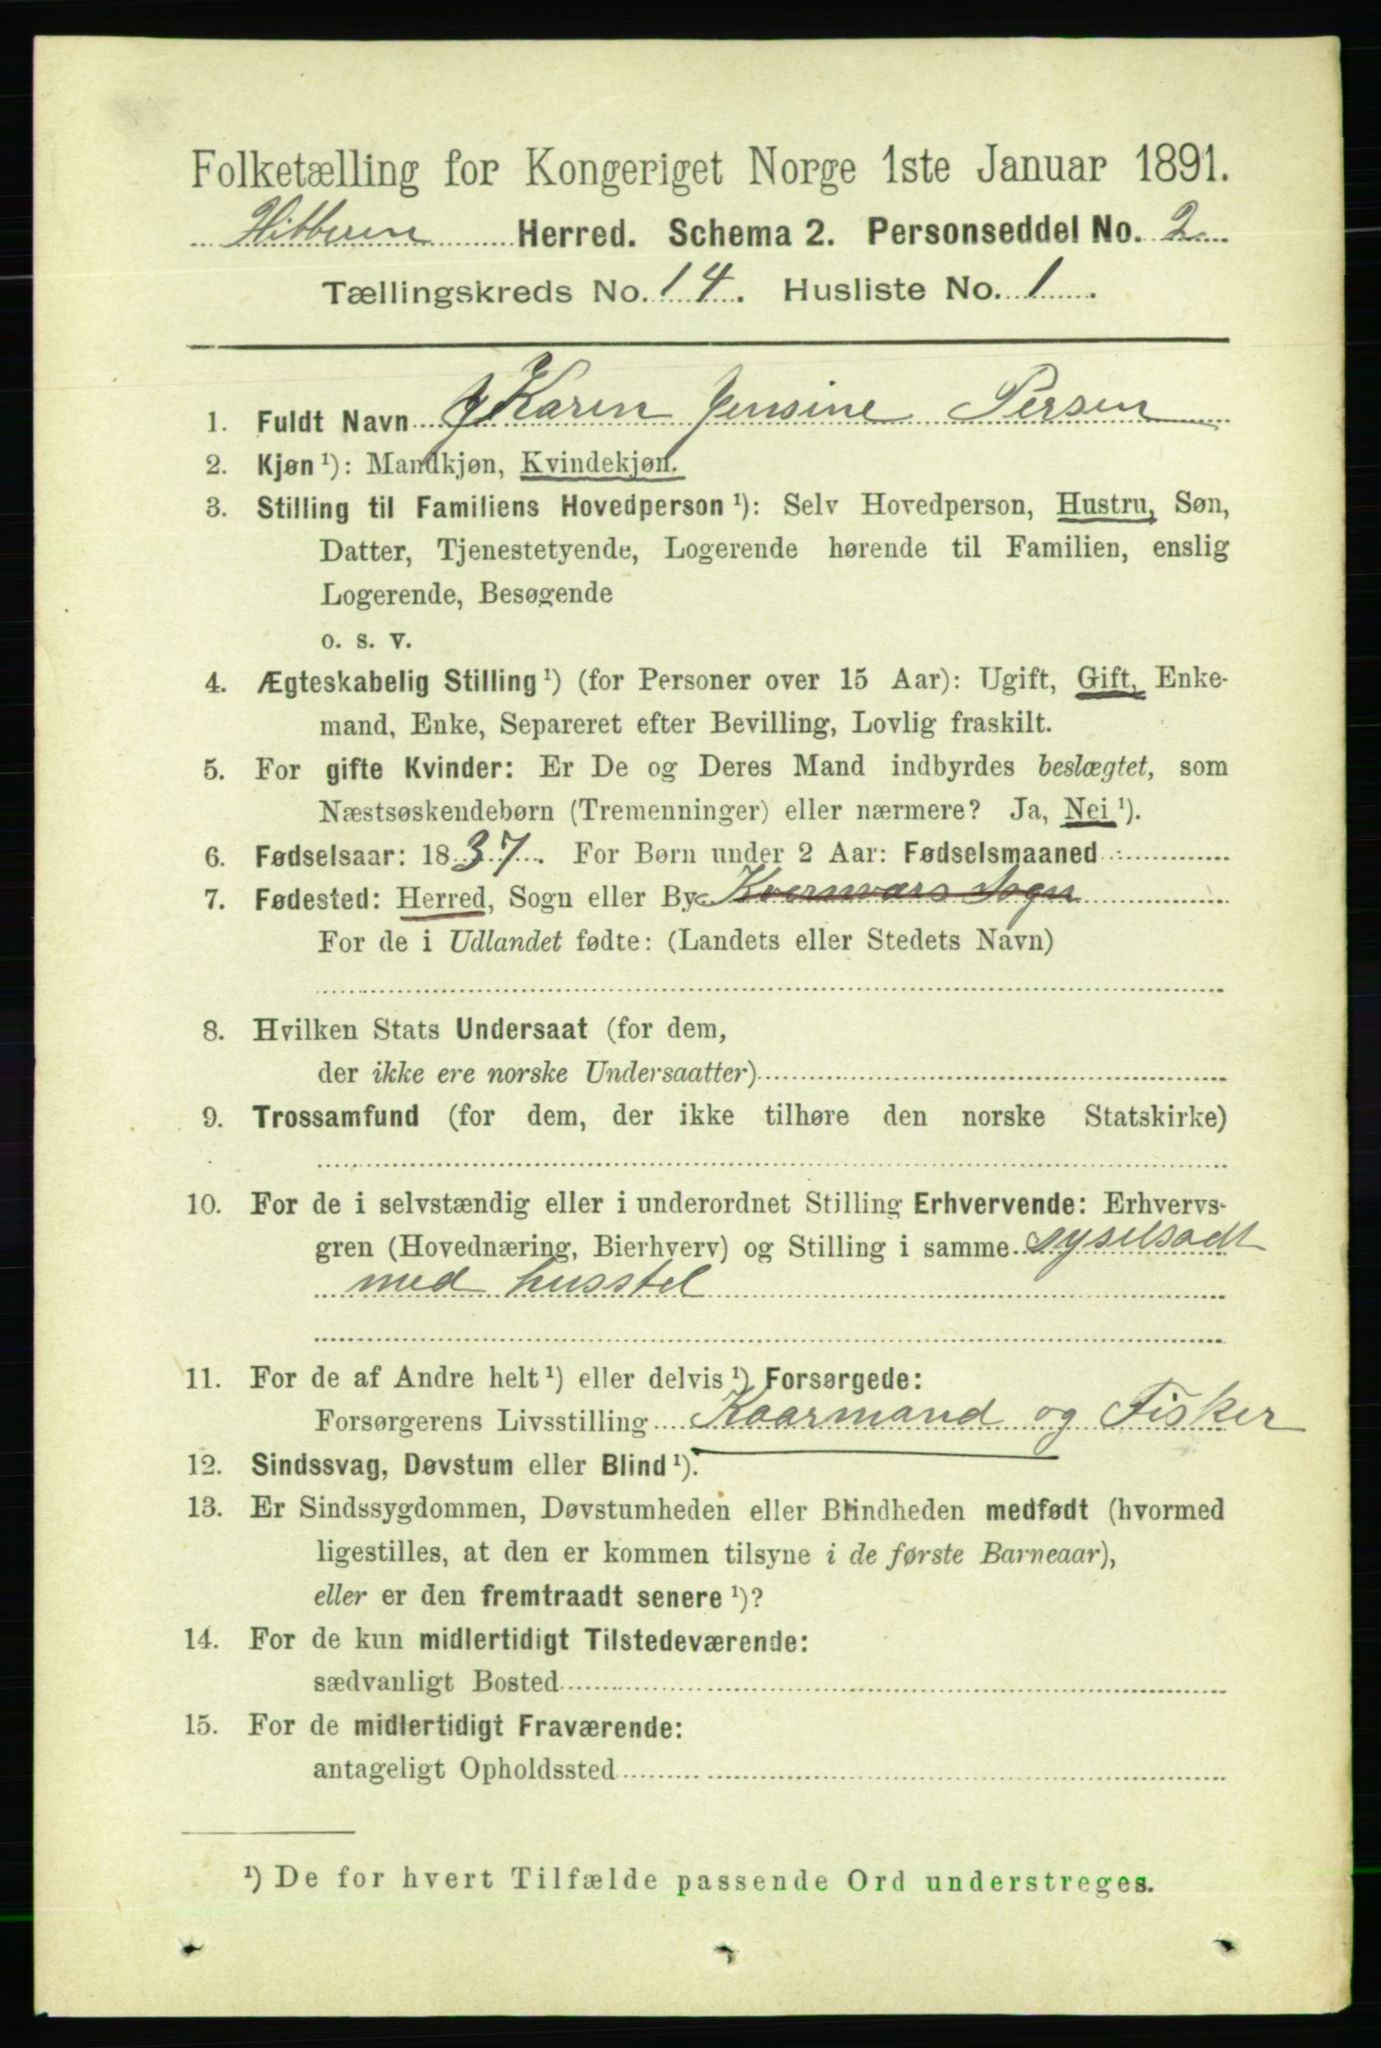 Folketælling for Kongeriget Norge 1ste Januar 1891.
Hitteren Herred. Schema 2. Personseddel No. 2
Tællingskreds No. 14. Husliste No. 1.
1. Fuldt Navn Karen Jensine Persen
2. Kjøn ¹): Mandkjøn, Kvindekjøn.
3. Stilling til Familiens Hovedperson ¹): Selv Hovedperson, Hustru, Søn,
Datter, Tjenestetyende, Logerende hørende til Familien, enslig
Logerende, Besøgende
o. s. v.
4. Ægteskabelig Stilling ¹) (for Personer over 15 Aar): Ugift, Gift, Enke-
mand, Enke, Separeret efter Bevilling, Lovlig fraskilt.
5. For gifte Kvinder: Er De og Deres Mand indbyrdes beslægtet, som
Næstsøskendebørn (Tremenninger) eller nærmere? Ja, Nei ¹).
6. Fødselsaar: 1837. For Børn under 2 Aar: Fødselsmaaned
7. Fødested: Herred, Sogn eller By Kvernvær Sogn
For de i Udlandet fødte: (Landets eller Stedets Navn)
8. Hvilken Stats Undersaat (for dem,
der ikke ere norske Undersaatter)
9. Trossamfund (for dem, der ikke tilhøre den norske Statskirke)
10. For de i selvstændig eller i underordnet Stilling Erhvervende: Erhvervs-
gren (Hovednæring, Bierhverv) og Stilling i samme syselsadt
med husstel
11. For de af Andre helt ¹) eller delvis ¹) Forsørgede:
Forsørgerens Livsstilling Kaarmand og Fisker
12. Sindssvag, Døvstum eller Blind ¹).
13. Er Sindssygdommen, Døvstumheden eller Blindheden medfødt (hvormed
ligestilles, at den er kommen tilsyne i de første Barneaar),
eller er den fremtraadt senere ¹)?
14. For de kun midlertidigt Tilstedeværende:
sædvanligt Bosted
15. For de midlertidigt Fraværende:
antageligt Opholdssted
¹) De for hvert Tilfælde passende Ord understreges.